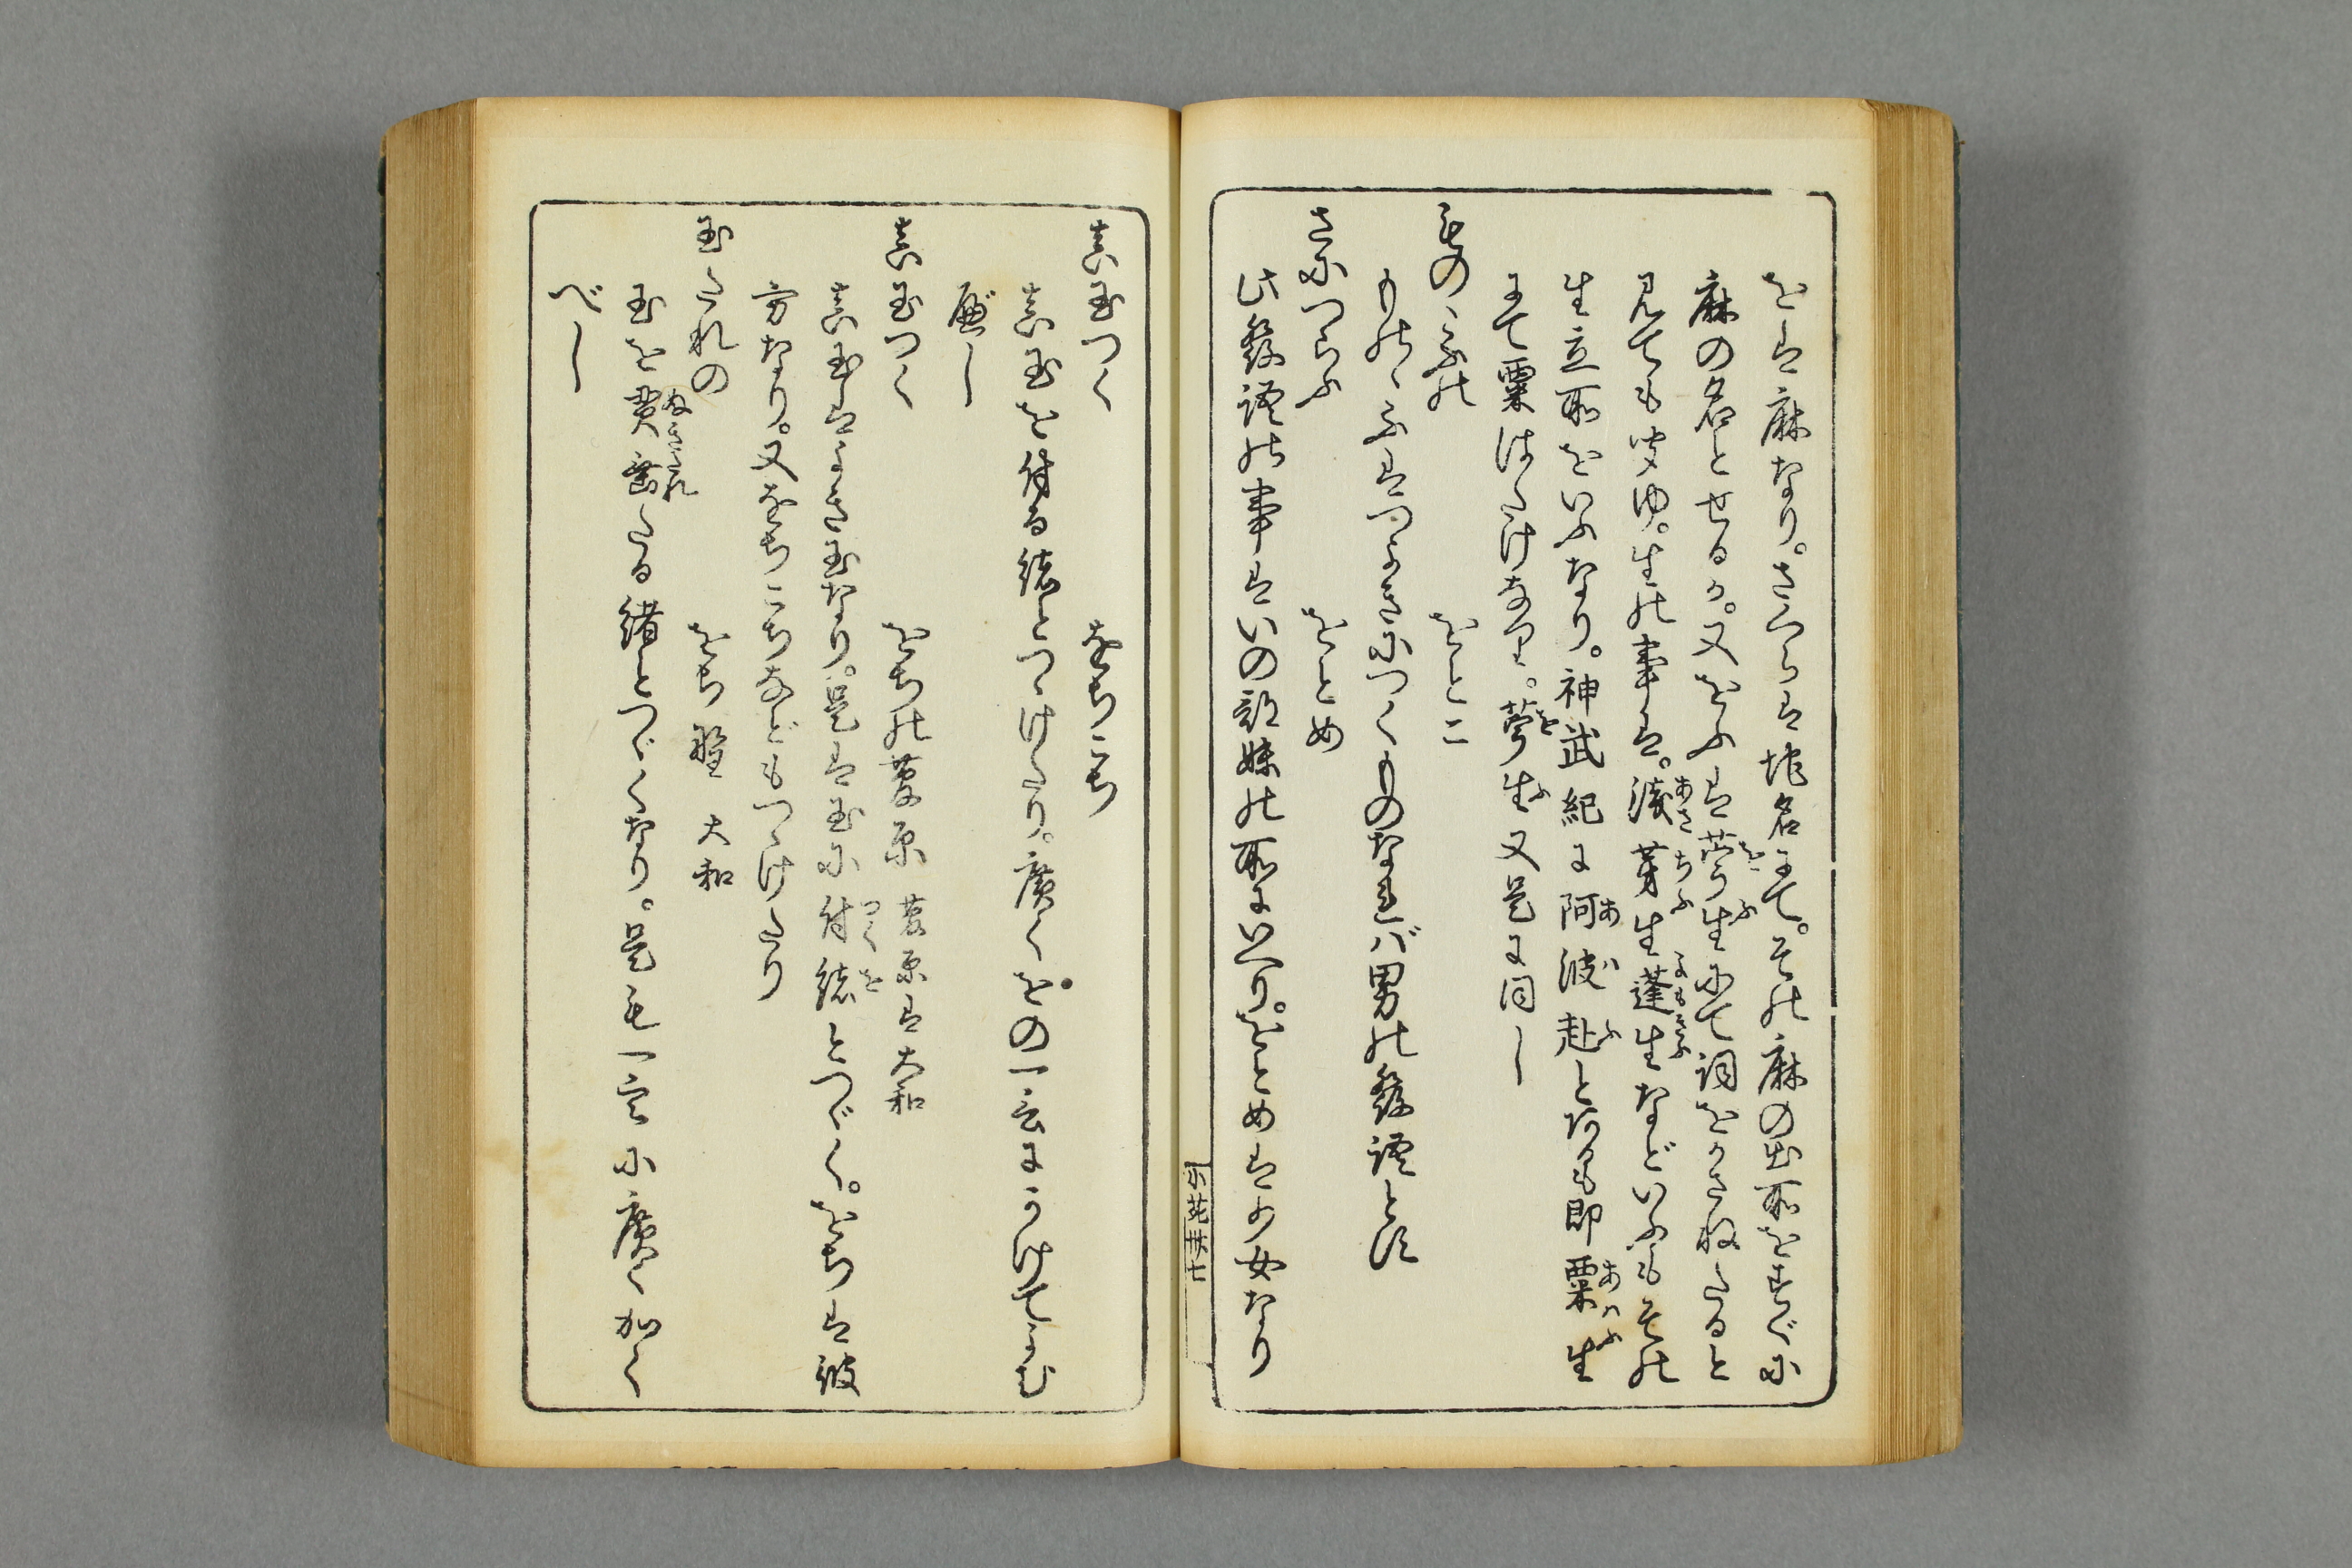 をは麻なり。さくらは地名にて。その麻の出所をすぐに
麻の名とせるか。又をふは苧生にて詞をかさねたると
見ても聞ゆ。生の事は。浅茅生蓬生などいふもその
生立所をいふなり。神武紀に阿波赴とあるも即粟生
にて粟はたけなり。苧生又是に同し
ものゝふの　をとこ
ものゝふはつよきにつくものなれバ男の發語とす
さにつらふ　をとめ
此發語の事はいの部妹の所にいへり。をとめは少女なり
真玉つく　をちこち
真玉を付る緒とつゝけたり。廣くをの一言にかけてよむ
べし
真玉つく　をちの菅原　菅原は大和
真玉はよき玉なり。是は玉に付緒とつゞく。をちは彼
方なり。又をちこちなどもつゝけたり
玉たれの　をち野　大和
玉を貫垂たる緒とつゞくなり。是も一言に廣く加く
べし